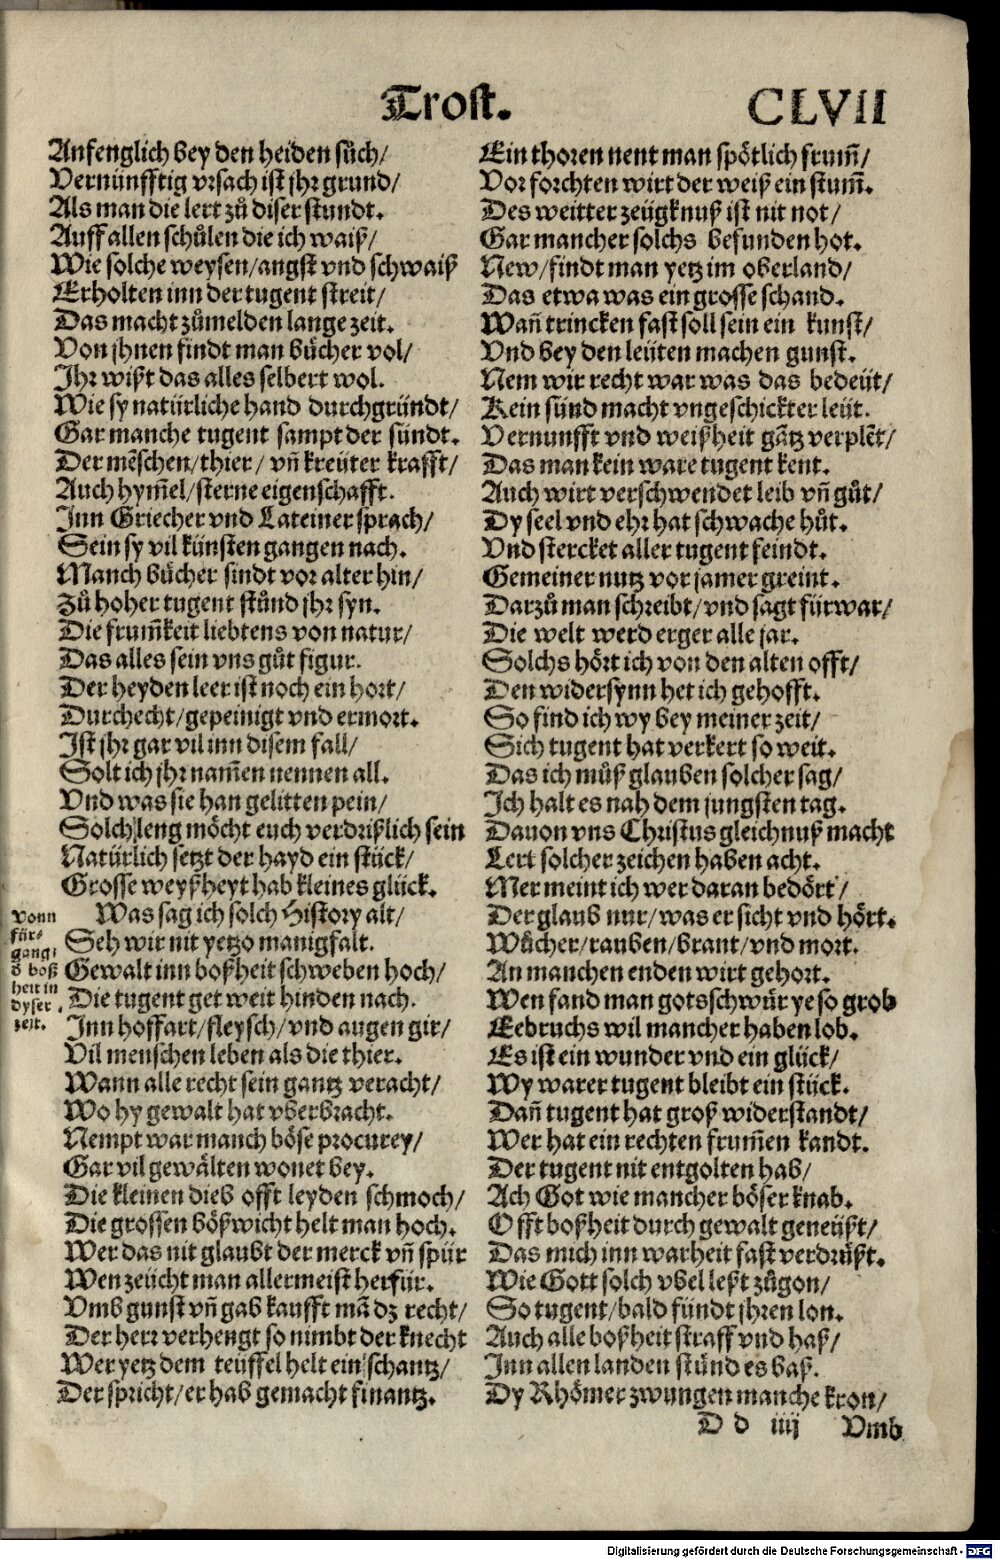 Trost.
CLVII
Anfenglich bey den heiden sůch/
Vernünfftig vrsach ist jhr grund/
Als man die lert zů diser stundt.
Auff allen schůlen die ich waiß/
Wie solche weysen/angst vnd schwaiß
Erholten inn der tugent streit/
Das macht zůmelden lange zeit.
Von jhnen findt man bücher vol/
Ihr wißt das alles selbert wol.
Wie sy natürliche hand durchgründt/
Gar manche tugent sampt der sündt.
Der mẽschen/thier/ vñ kreüter krafft/
Auch hym̃el/sterne eigenschafft.
Inn Griecher vnd Lateiner sprach/
Sein sy vil künsten gangen nach.
Manch bücher sindt vor alter hin/
Zů hoher tugent stůnd jhr syn.
Die frum̃keit liebtens von natur/
Das alles sein vns gůt figur.
Der heyden leer ist noch ein hort/
Durchecht/gepeinigt vnd ermort.
Ist jhr gar vil inn disem fall/
Solt ich jhr nam̃en nennen all.
Vnd was sie han gelitten pein/
Solch leng möcht euch verdrißlich sein
Natürlich setzt der hayd ein stück/
Grosse weyßheyt hab kleines glück.
vonn
für⸗
gang⸗
d boß
heit in
dyser
zeit.
Was sag ich solch History alt/
Seh wir nit yetzo manigfalt.
Gewalt inn boßheit schweben hoch/
Die tugent get weit hinden nach.
Inn hoffart/fleysch/vnd augen gir/
Vil menschen leben als die thier.
Wann alle recht sein gantz veracht/
Wo hy gewalt hat vberbracht.
Nempt war manch böse procurey/
Gar vil gewälten wonet bey.
Die kleinen dieb offt leyden schmoch/
Die grossen bößwicht helt man hoch.
Wer das nit glaubt der merck vñ spür
Wen zeücht man allermeist herfür.
Vmb gunst vñ gab kaufft mã dz recht/
Der herr verhengt so nimbt der knecht
Wer yetz dem teüffel helt ein schantz/
Der spricht/er hab gemacht finantz.
Ein thoren nent man spötlich frum̃/
Vor forchten wirt der weiß ein stum̃.
Des weitter zeügknuß ist nit not/
Gar mancher solchs befunden hot.
New/findt man yetz im oberland/
Das etwa was ein grosse schand.
Wañ trincken fast soll sein ein kunst/
Vnd bey den leüten machen gunst.
Nem wir recht war was das bedeüt/
Kein sünd macht vngeschickter leüt.
Vernunfft vnd weißheit gãtz verplẽt/
Das man kein ware tugent kent.
Auch wirt verschwendet leib vñ gůt/
Dy seel vnd ehr hat schwache hůt.
Vnd stercket aller tugent feindt.
Gemeiner nutz vor jamer greint.
Darzů man schreibt/vnd sagt fürwar/
Die welt werd erger alle jar.
Solchs hört ich von den alten offt/
Den widersynn het ich gehofft.
So find ich wy bey meiner zeit/
Sich tugent hat verkert so weit.
Das ich můß glauben solcher sag/
Ich halt es nah dem jungsten tag.
Dauon vns Christus gleichnuß macht
Lert solcher zeichen haben acht.
Mer meint ich wer daran bedört/
Der glaub nur/was er sicht vnd hört.
Wůcher/rauben/brant/vnd mort.
An manchen enden wirt gehort.
Wen fand man gotsschwür ye so grob
Eebruchs wil mancher haben lob.
Es ist ein wunder vnd ein glück/
Wy warer tugent bleibt ein stück.
Dañ tugent hat groß widerstandt/
Wer hat ein rechten frum̃en kandt.
Der tugent nit entgolten hab/
Ach Got wie mancher böser knab.
Offt boßheit durch gewalt geneüßt/
Das mich inn warheit fast verdrüßt.
Wie Gott solch vbel leßt zůgon/
So tugent/bald fündt jhren lon.
Auch alle boßheit straff vnd haß/
Inn allen landen stünd es baß.
Dy Rhömer zwungen manche kron/
D d iiij
Vmb
Digitalisierung gefördert durch die Deutsche Forschungsgemeinschaft - DFG